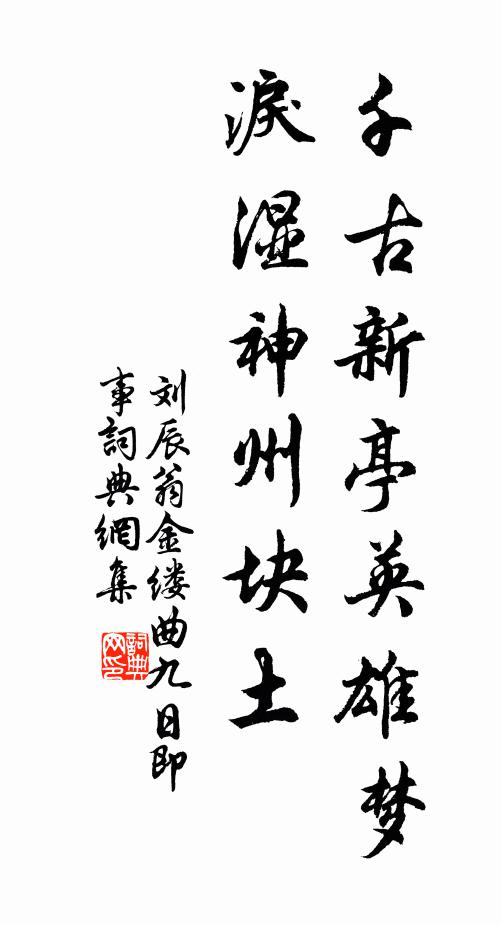 千古新亭英雄梦
淚湿神州块土
刘辰翁金缕曲九日即
事詞典網集
詞典网印